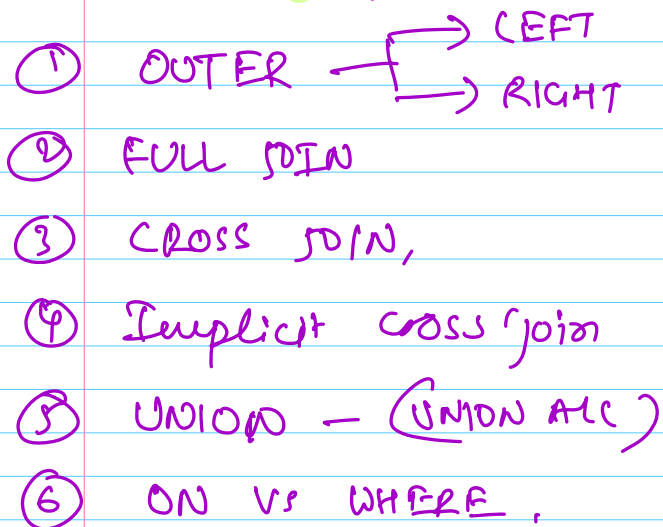 ① OUTER → LEFT
→ RIGHT
② FULL JOIN
③ CROSS JOIN,
④ Implicit cross join
⑤ UNION - (UNION ALL)
⑥ ON VS WHERE.